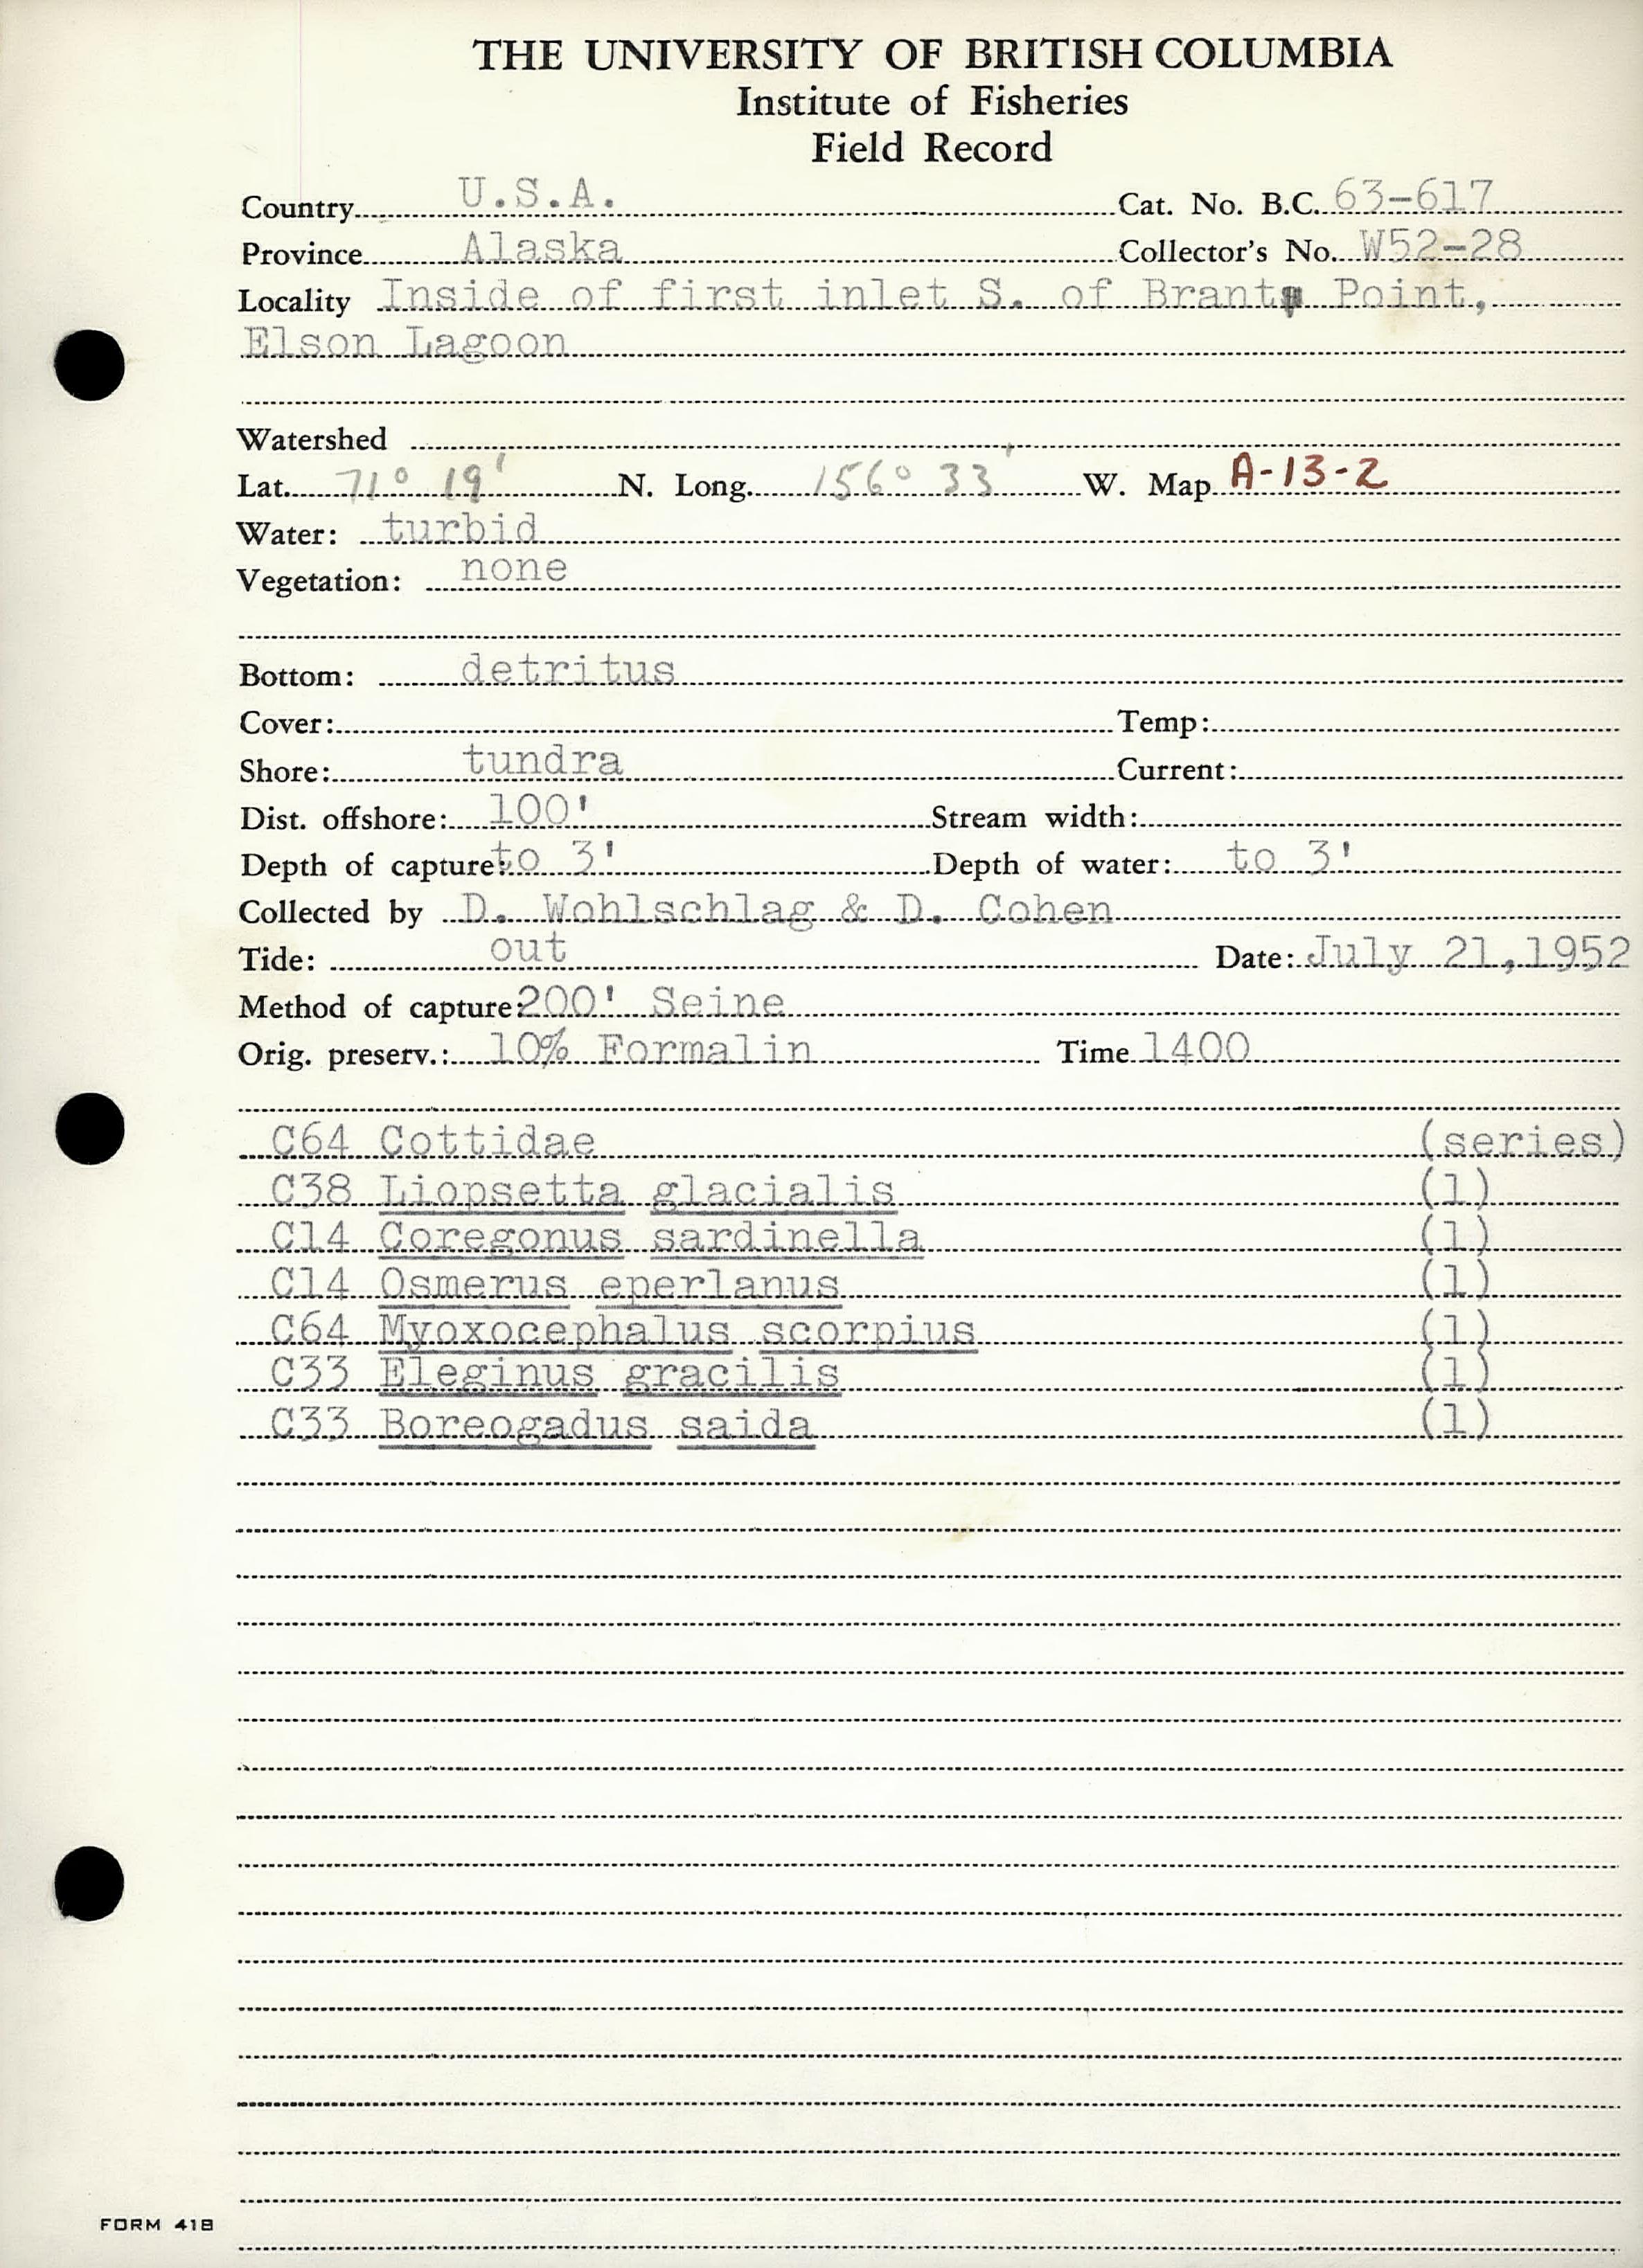 THE UNIVERSITY OF BRITISH COLUMBIA
Institute of Fisheries
Field Record
Country U.S.A. Cat. No. B.C. 63-617
Province Alaska Collector's No. W52-28
Locality Inside of first inlet S. of Brant Point,
Elson Lagoon
Watershed
Lat. 71° 19' N. Long. 156° 33' W. Map A-13-2
Water: turbid
Vegetation: none
Bottom: detritus
Cover: Temp:
Shore: tundra Current:
Dist. offshore: 100' Stream width:
Depth of capture: to 3' Depth of water: to 3'
Collected by D. Wohlschlag & D. Cohen
Tide: out Date: July 21, 1952
Method of capture: 200' Seine
Orig. preserv.: 10% Formalin Time 1400
C64 Cottidae (series)
C38 Liopsetta glacialis (1)
C14 Coregonus sardinella (1)
C14 Osmerus eperlanus (1)
C64 Myoxocephalus scorpius (1)
C33 Eleginus gracilis (1)
C33 Boreogadus saida (1)
FORM 41B